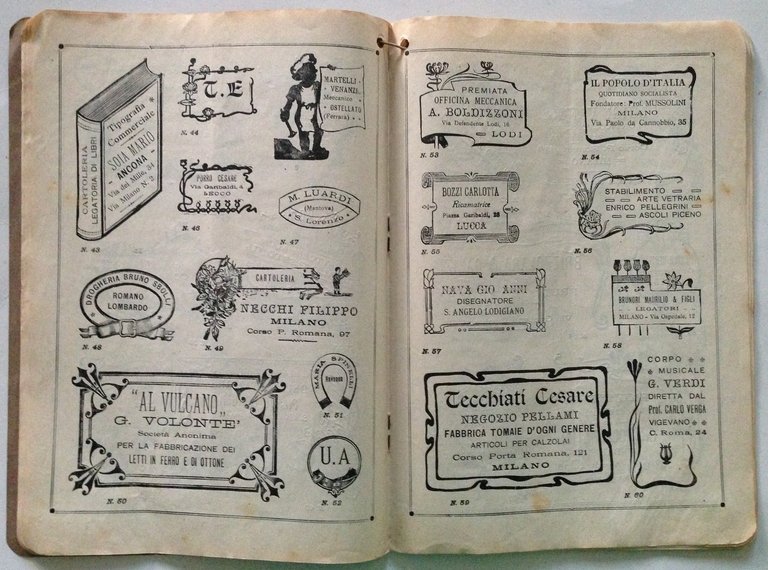 CARTOLERIA
LEGATORIA DI LIBRI
Tipografia
Commerciale
SOIA MARIO
- ANCONA -
Via del Mils, 24
Via Milano N. 2
N. 43
T.E
N. 44
MARTELLI
VENANZI
Meccanico
OSTELLATO
(Ferrara)
PORRO CESARE
Via Garibaldi, 4
LECCO
N. 46
M. LUARDI
(Mantova)
S. Lorenzo
N. 47
DROGHERIA BRUNO SBOLLI
ROMANO
LOMBARDO
N. 48
CARTOLERIA
NECCHI FILIPPO
MILANO
Corso P. Romana, 97
N. 49
"AL VULCANO„
G. VOLONTE'
Società Anonima
PER LA FABBRICAZIONE DEI
LETTI IN FERRO E DI OTTONE
N. 50
MARIA SPINELLI
N. 51
U.A
N. 52
PREMIATA
OFFICINA MECCANICA
A. BOLDIZZONI
Via Defendente Lodi, 16
- LODI
N. 53
IL POPOLO D'ITALIA
QUOTIDIANO SOCIALISTA
Fondatore: Prof. MUSSOLINI
MILANO
Via Paolo da Cannobbio, 35
N. 54
BOZZI CARLOTTA
Ricamatrice
Piazza Garibaldi, 28
LUCCA
N. 55
STABILIMENTO
ARTE VETRARIA
ENRICO PELLEGRINI
ASCOLI PICENO
N. 56
NAVA GIO ANNI
DISEGNATORE
S. ANGELO LODIGIANO
N. 57
BRUNORI MAURILIO & FIGLI
LEGATORI
MILANO - Via Ospedale, 12
N. 58
Tecchiati Cesare
NEGOZIO PELLAMI
FABBRICA TOMAIE D'OGNI GENERE
ARTICOLI PER CALZOLAI
Corso Porta Romana, 121
MILANO
N. 59
CORPO
MUSICALE
G. VERDI
DIRETTA DAL
Prof. CARLO VERGA
VIGEVANO
C. Roma, 24
N. 60